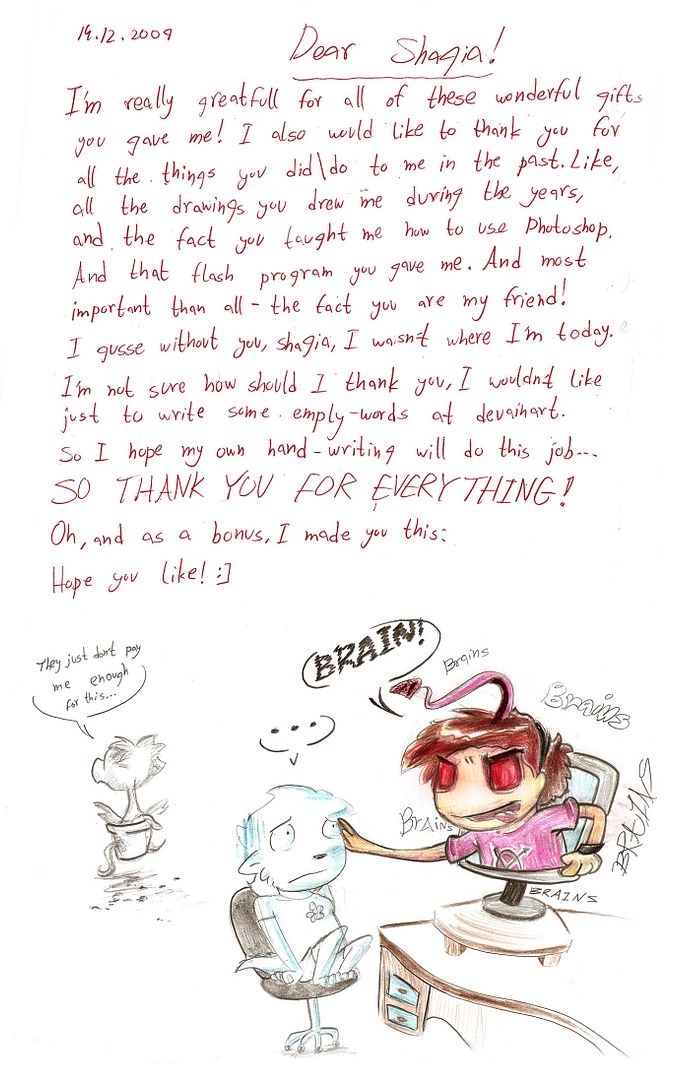 19.12.2009
Dear Shagia!
I'm really greatfull for all of these wonderful gifts
you gave me! I also would like to thank you for
all the things you did\do to me in the past. Like,
all the drawings you drew me during the years,
and the fact you taught me how to use Photoshop.
And that flash program you gave me. And most
important than all - the fact you are my friend!
I gusse without you, shagia, I wasn't where I'm today.
I'm not sure how should I thank you, I wouldn't like
just to write some emply-words at devaihart.
So I hope my own hand-writing will do this job...
SO THANK YOU FOR EVERYTHING!
Oh, and as a bonus, I made you this:
Hope you like! :]
They just don't pay
me enough
for this...
BRAIN!
Brains
Brains
...
Brains
BRAINS
BRAINS